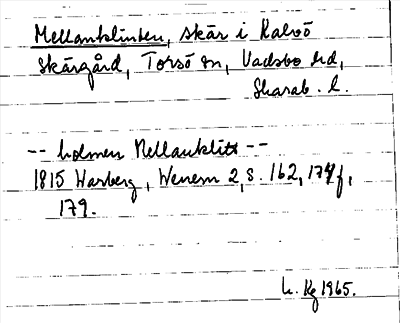 Mellanklinten, skär i Kalvö
Skärgård, Torsö sn, Vadsbo hd,
Skarab. l.
-- holmen Mellanklitt --
1815 Warberg, Wenern 2, S. 162, 174f,
179.
1965.